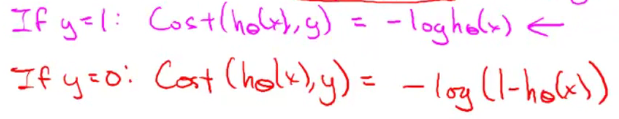 If y=1: Cost(hθ(x), y) = -log hθ(x) ←
If y=0: Cost(hθ(x), y) = -log(1-hθ(x))